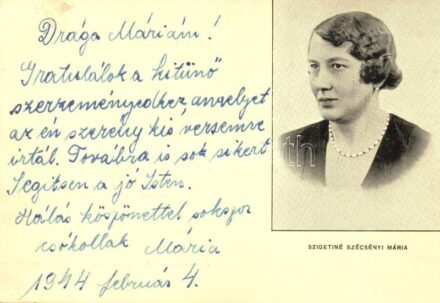 Drága Máriám!
Gratulálok a kitünő
szerzeményedhez amelyet
az én szerény kis versemre
irtál. Továbbra is sok sikert
Segitsen a jó Isten.
Hálás köszönettel sokszor
csókollak Mária
1944 február 4.
SZIGETINÉ SZÉCSÉNYI MÁRIA